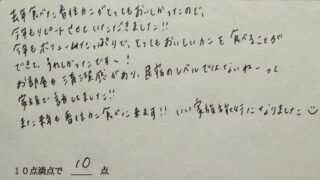 去年食べた香住カニがとってもおいしかったので、
今年もリピートさせていただきました!!
今年もボリュームたっぷりで、とってもおいしいカニを食べることが
できて、うれしかったです〜!
お部屋も清潔感があり、民宿のレベルではないねーって
家族で話してました!!
また来年も香住カニ食べに来ます!! いい家族旅行になりました☺
10点満点で 10 点